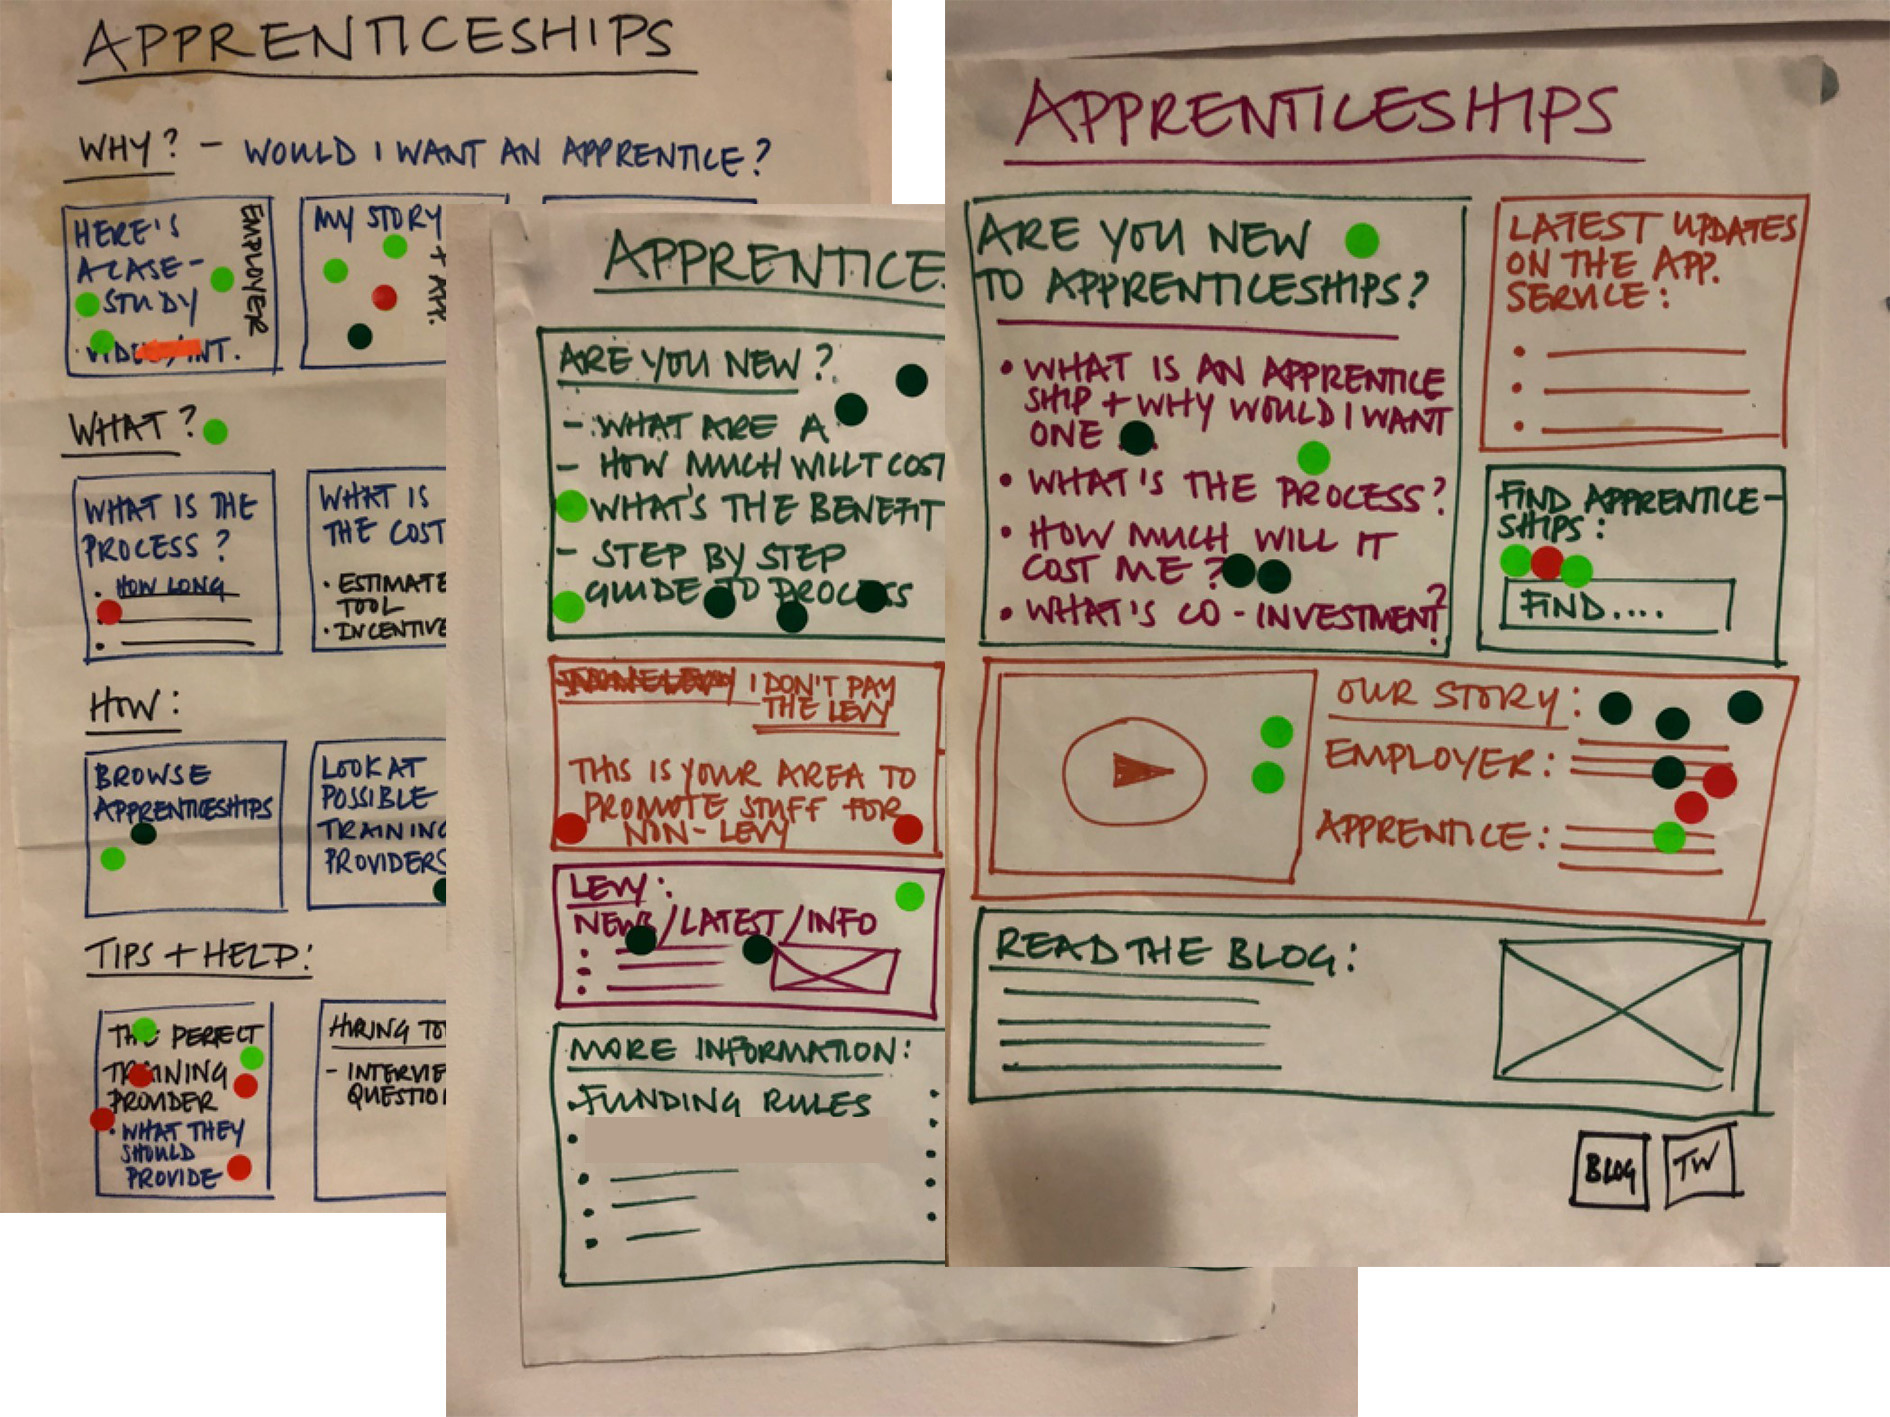 APPRENTICESHIPS
WHY? - WOULD I WANT AN APPRENTICE?
HERE'S
A CASE-
STUDY
VIDEO/INT.
EMPLOYER
MY STORY
+ APP.
WHAT?
WHAT IS THE
PROCESS?
• HOW LONG
WHAT IS
THE COST
• ESTIMATE
TOOL
• INCENTIVE
HOW:
BROWSE
APPRENTICESHIPS
LOOK AT
POSSIBLE
TRAINING
PROVIDERS
TIPS + HELP:
THE PERFECT
TRAINING
PROVIDER
• WHAT THEY
SHOULD
PROVIDE
HIRING
- INTERVIE
QUESTIO
APPRENTICE
ARE YOU NEW?
- WHAT ARE A
- HOW MUCH WILL T COST
WHAT'S THE BENEFIT
- STEP BY STEP
GUIDE TO PROCESS
I DON'T PAY
THE LEVY
THIS IS YOUR AREA TO
PROMOTE STUFF FOR
NON-LEVY
LEVY:
NEWS/LATEST/INFO
MORE INFORMATION:
• FUNDING RULES
APPRENTICESHIPS
ARE YOU NEW
TO APPRENTICESHIPS?
• WHAT IS AN APPRENTICE
SHIP + WHY WOULD I WANT
ONE
• WHAT'S THE PROCESS?
• HOW MUCH WILL IT
COST ME?
• WHAT'S CO-INVESTMENT?
LATEST UPDATES
ON THE APP.
SERVICE:
FIND APPRENTICE-
SHIPS:
FIND....
OUR STORY:
EMPLOYER:
APPRENTICE:
READ THE BLOG:
BLOG
TW